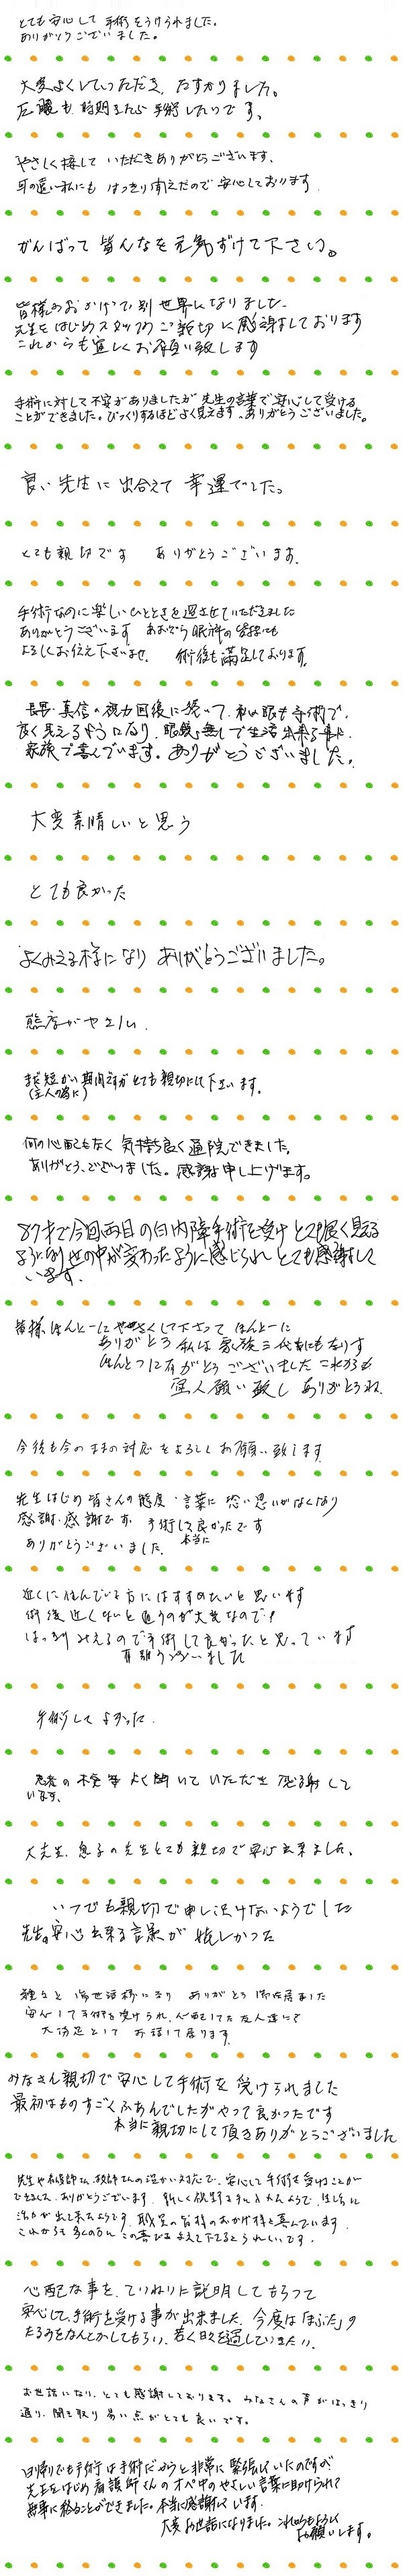 とても安心して手術をうけられました。
ありがとうございました。
大変よくしていただき、たすかりました。
左眼も時期をたい手術したいです。
やさしく接していただきありがとうございます、
耳の遠い私にもはっきり聞えたので安心しております。
がんばって皆んなを元気ずけて下さい。
皆様のおかげで別世界になりました。
先生をはじめスタッフのご親切に感謝しております
これからも宜しくお願い致します
手術に対して不安がありましたが先生の言葉で安心して受ける
ことができました。びっくりするほどよく見えます。ありがとうございました。
良い先生に出合えて幸運でした。
とても親切です ありがとうございます。
手術なのに楽しいひとときを過させていただきました
ありがとうございます あおぞら眼科の皆様にも
よろしくお伝え下さいませ。 術後も満足しております。
長男・真信の視力回復に続いて、私の眼も手術で、
良く見えるようになり、眼鏡無しで生活出来る事に、
家族で喜んでいます。ありがとうございました。
大変素晴しいと思う
とても良かった
よくみえる様になりありがとうございました。
態度がやさしい。
まだ短かい期間ですがとても親切にして下さいます。
(主人の為に)
何の心配もなく気持ち良く通院できました。
ありがとうございました。感謝申し上げます。
87才で今回両目の白内障手術を受けとても良く見える
ようになり世の中が変わったように感じられとても感謝して
います。
皆様、ほんとーにやさしくして下さってほんとーに
ありがとう 私は家族三代お世になります
ほんとうにありがとうございました これからも
宜しく願い致し ありがとうね
今後も今のままの対応をよろしくお願い致します
先生はじめ皆さんの態度・言葉に恐い思いがなくなり
感謝・感謝です。手術して良かったです
ありがとうございました。 本当に
近くに住んでいる方にはすすめたいと思います
術後近くないと通うのが大変なので!
はっきりみえるので手術して良かったと思っています
有難うございました
手術してよかった。
患者の不安等よく聞いていただき感謝して
います。
大先生、息子の先生とても親切で安心出来ました。
いつでも親切で申し訳けないようでした
先生の安心出来る言葉が嬉しかった
種々と御世話様になり ありがとう御座居ました
安心して手術を受けられ、心配してた友人達にも
大満足としてお話して居ります
みなさん親切で安心して手術を受けられました
最初はものすごくふあんでしたがやって良かったです
本当に親切にして頂きありがとうございました
先生や看護師さん、技師さんの温かい対応で、安心して手術を受けることが
できました。ありがとうございます。新しく視野を手に入れたようで、生活に
活力が出て来たようです。職員の皆様のおかげ様と喜んでいます。
これからも多くの方にこの喜びを与えて下さるとうれしいです。
心配な事を、ていねいに説明してもらって
安心して、手術を受ける事が出来ました。今度は「まぶた」の
たるみをなんとかしてもらい、若く日々を過していきたい。
お世話になり、とても感謝しております。みなさんの声がはっきり
通り、聞き取り易い点がとても良いです。
日帰りでも手術は手術だからと非常に緊張していたのですが
先生をはじめ看護師さんのオペ中のやさしい言葉に助けられて
無事に終ることができました。本当に感謝しています。
大変お世話になりました。これからもよろしく
お願いします。